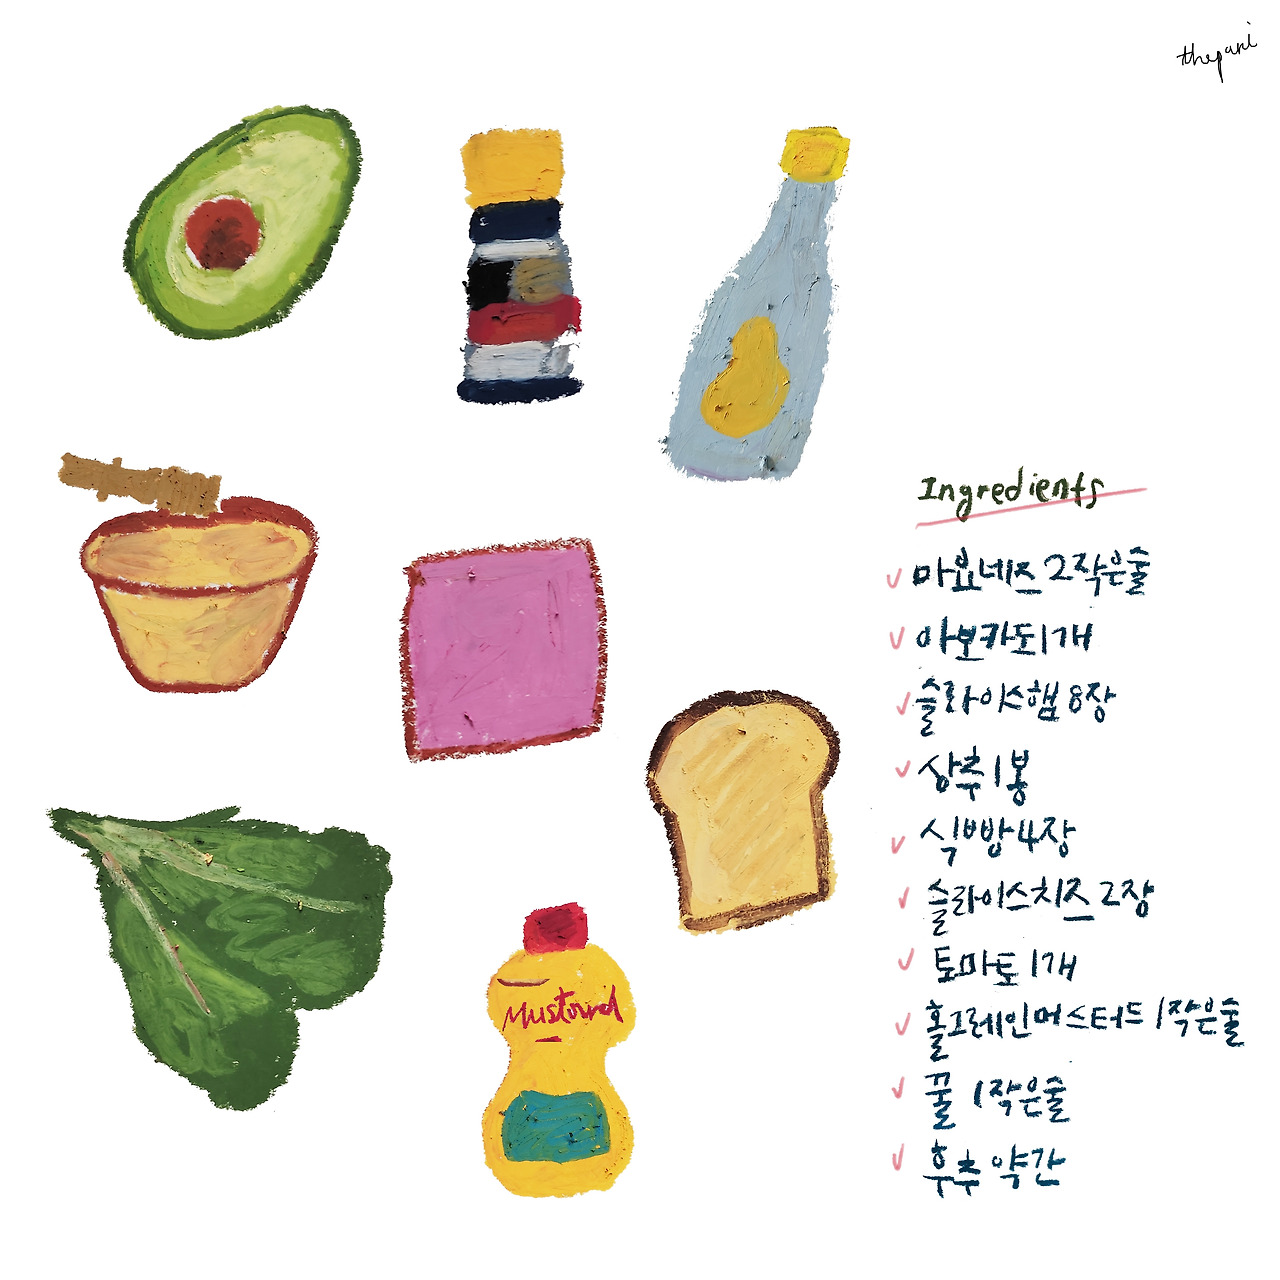 thepani
Ingredients
마요네즈 2작은술
아보카도 1개
슬라이스햄 8장
상추 1봉
식빵 4장
슬라이스치즈 2장
토마토 1개
홀그레인머스터드 1작은술
꿀 1작은술
후추 약간
Mustard